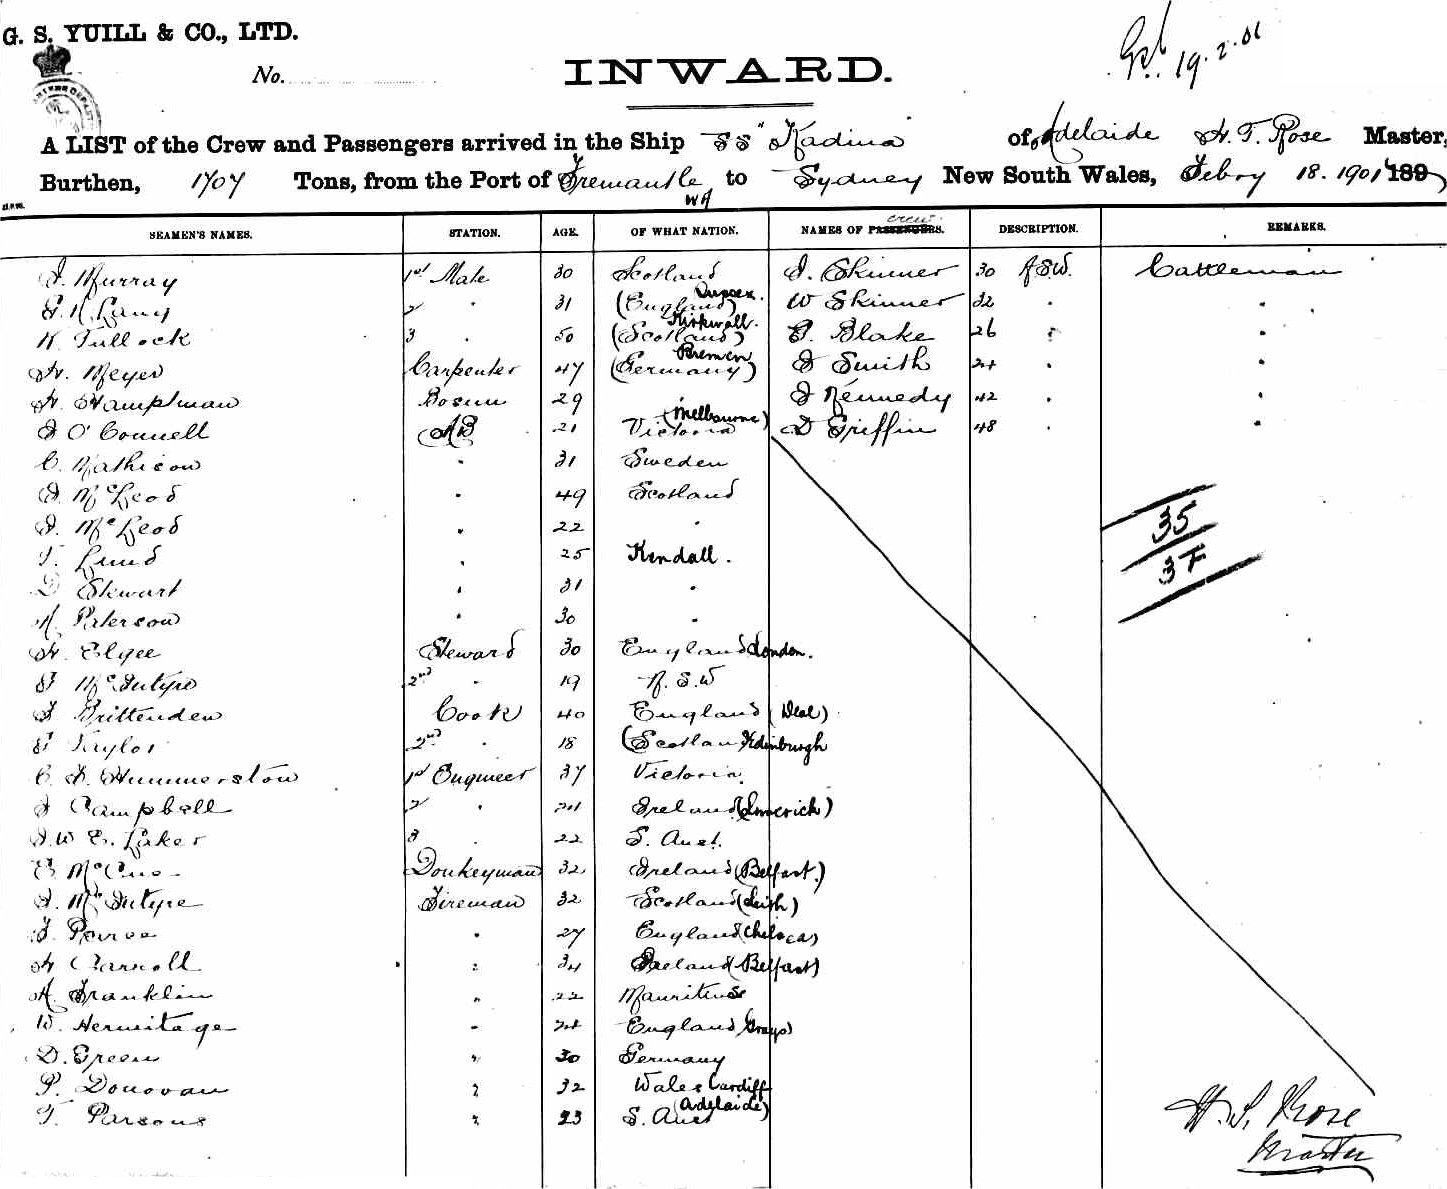 G. S. YUILL & CO., LTD.
19.2.01
No.
INWARD.
A LIST of the Crew and Passengers arrived in the Ship SS "Kadina" of Adelaide H. T. Rose Master,
Burthen, 1707 Tons, from the Port of Fremantle WA to Sydney New South Wales, Feby 18. 1901 189
SEAMEN'S NAMES. STATION. AGE. OF WHAT NATION. NAMES OF PASSENGERS. crew. DESCRIPTION. REMARKS.
J. Murray 1st Mate 30 Scotland J. Skinner 30 NSW. Cattleman
2 " 31 (England) Sussex. W Skinner 32 " "
K. Tullock 3 " 50 (Scotland) Kirkwall. Blake 26 " "
H. Meyer Carpenter 47 (Germany) Bremen J Smith 24 " "
H. Hamptman Bosun 29 " J Kennedy 42 " "
J O'Connell AB 21 Victoria (Melbourne) D Griffin 48 " "
C. Mathison " 31 Sweden
J. McLeod " 49 Scotland
J. McLeod " 22 "
T. Lund " 25 Kendall.
D Stewart " 31 "
Paterson " 30 "
H. Elgee Steward 30 England London.
McIntyre 2nd " 19 N.S.W
J Brittenden Cook 40 England (Deal)
Taylor 2nd " 18 (Scotland Edinburgh
C. F. Hummerston 1st Engineer 37 Victoria.
J Campbell 2 " 24 Ireland (Limerick)
J.W E. Laker 3 " 22 S. Aust.
McCue Donkeyman 32 Ireland (Belfast.)
J. McIntyre Fireman 32 Scotland (Leith)
J. Peirce " 27 England (Chelsea)
H Carroll " 34 Ireland (Belfast)
A. Franklin " 22 Mauritius
W. Hermitage " 24 England (Grays)
D. Green " 30 Germany
P. Donovan " 32 Wales Cardiff
T. Parsons " 23 S. Aust (Adelaide)
35
37
H. T. Rose
Master